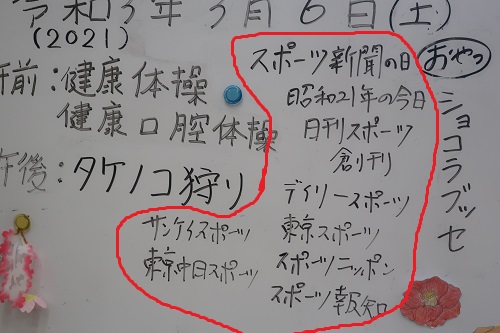 令和3年3月6日(土)
(2021)
午前:健康体操
健康口腔体操
午後:タケノコ狩り
スポーツ新聞の日
昭和21年の今日
日刊スポーツ
創刊
デイリースポーツ
サンケイスポーツ
東京スポーツ
東京中日スポーツ
スポーツニッポン
スポーツ報知
おやつ
ショコラブッセ